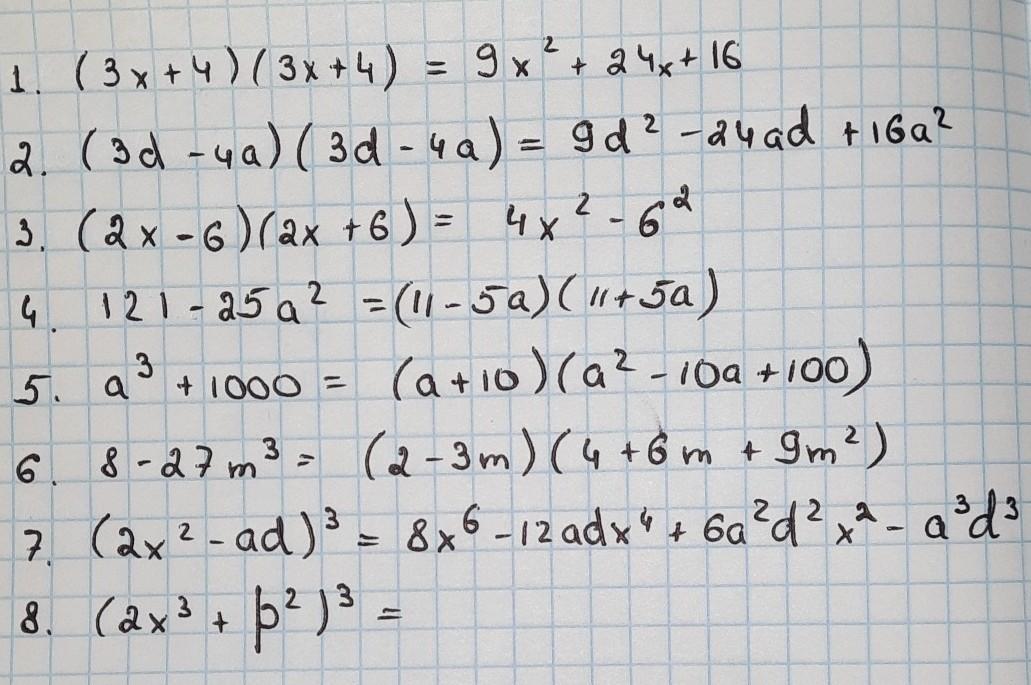 1. (3x+4)(3x+4) = 9x² + 24x + 16
2. (3d - 4a)(3d - 4a) = 9d² - 24ad + 16a²
3. (2x - 6)(2x + 6) = 4x² - 6²
4. 121 - 25a² = (11 - 5a)(11 + 5a)
5. a³ + 1000 = (a + 10)(a² - 10a + 100)
6. 8 - 27m³ = (2 - 3m)(4 + 6m + 9m²)
7. (2x² - ad)³ = 8x⁶ - 12adx⁴ + 6a²d²x² - a³d³
8. (2x³ + p²)³ =